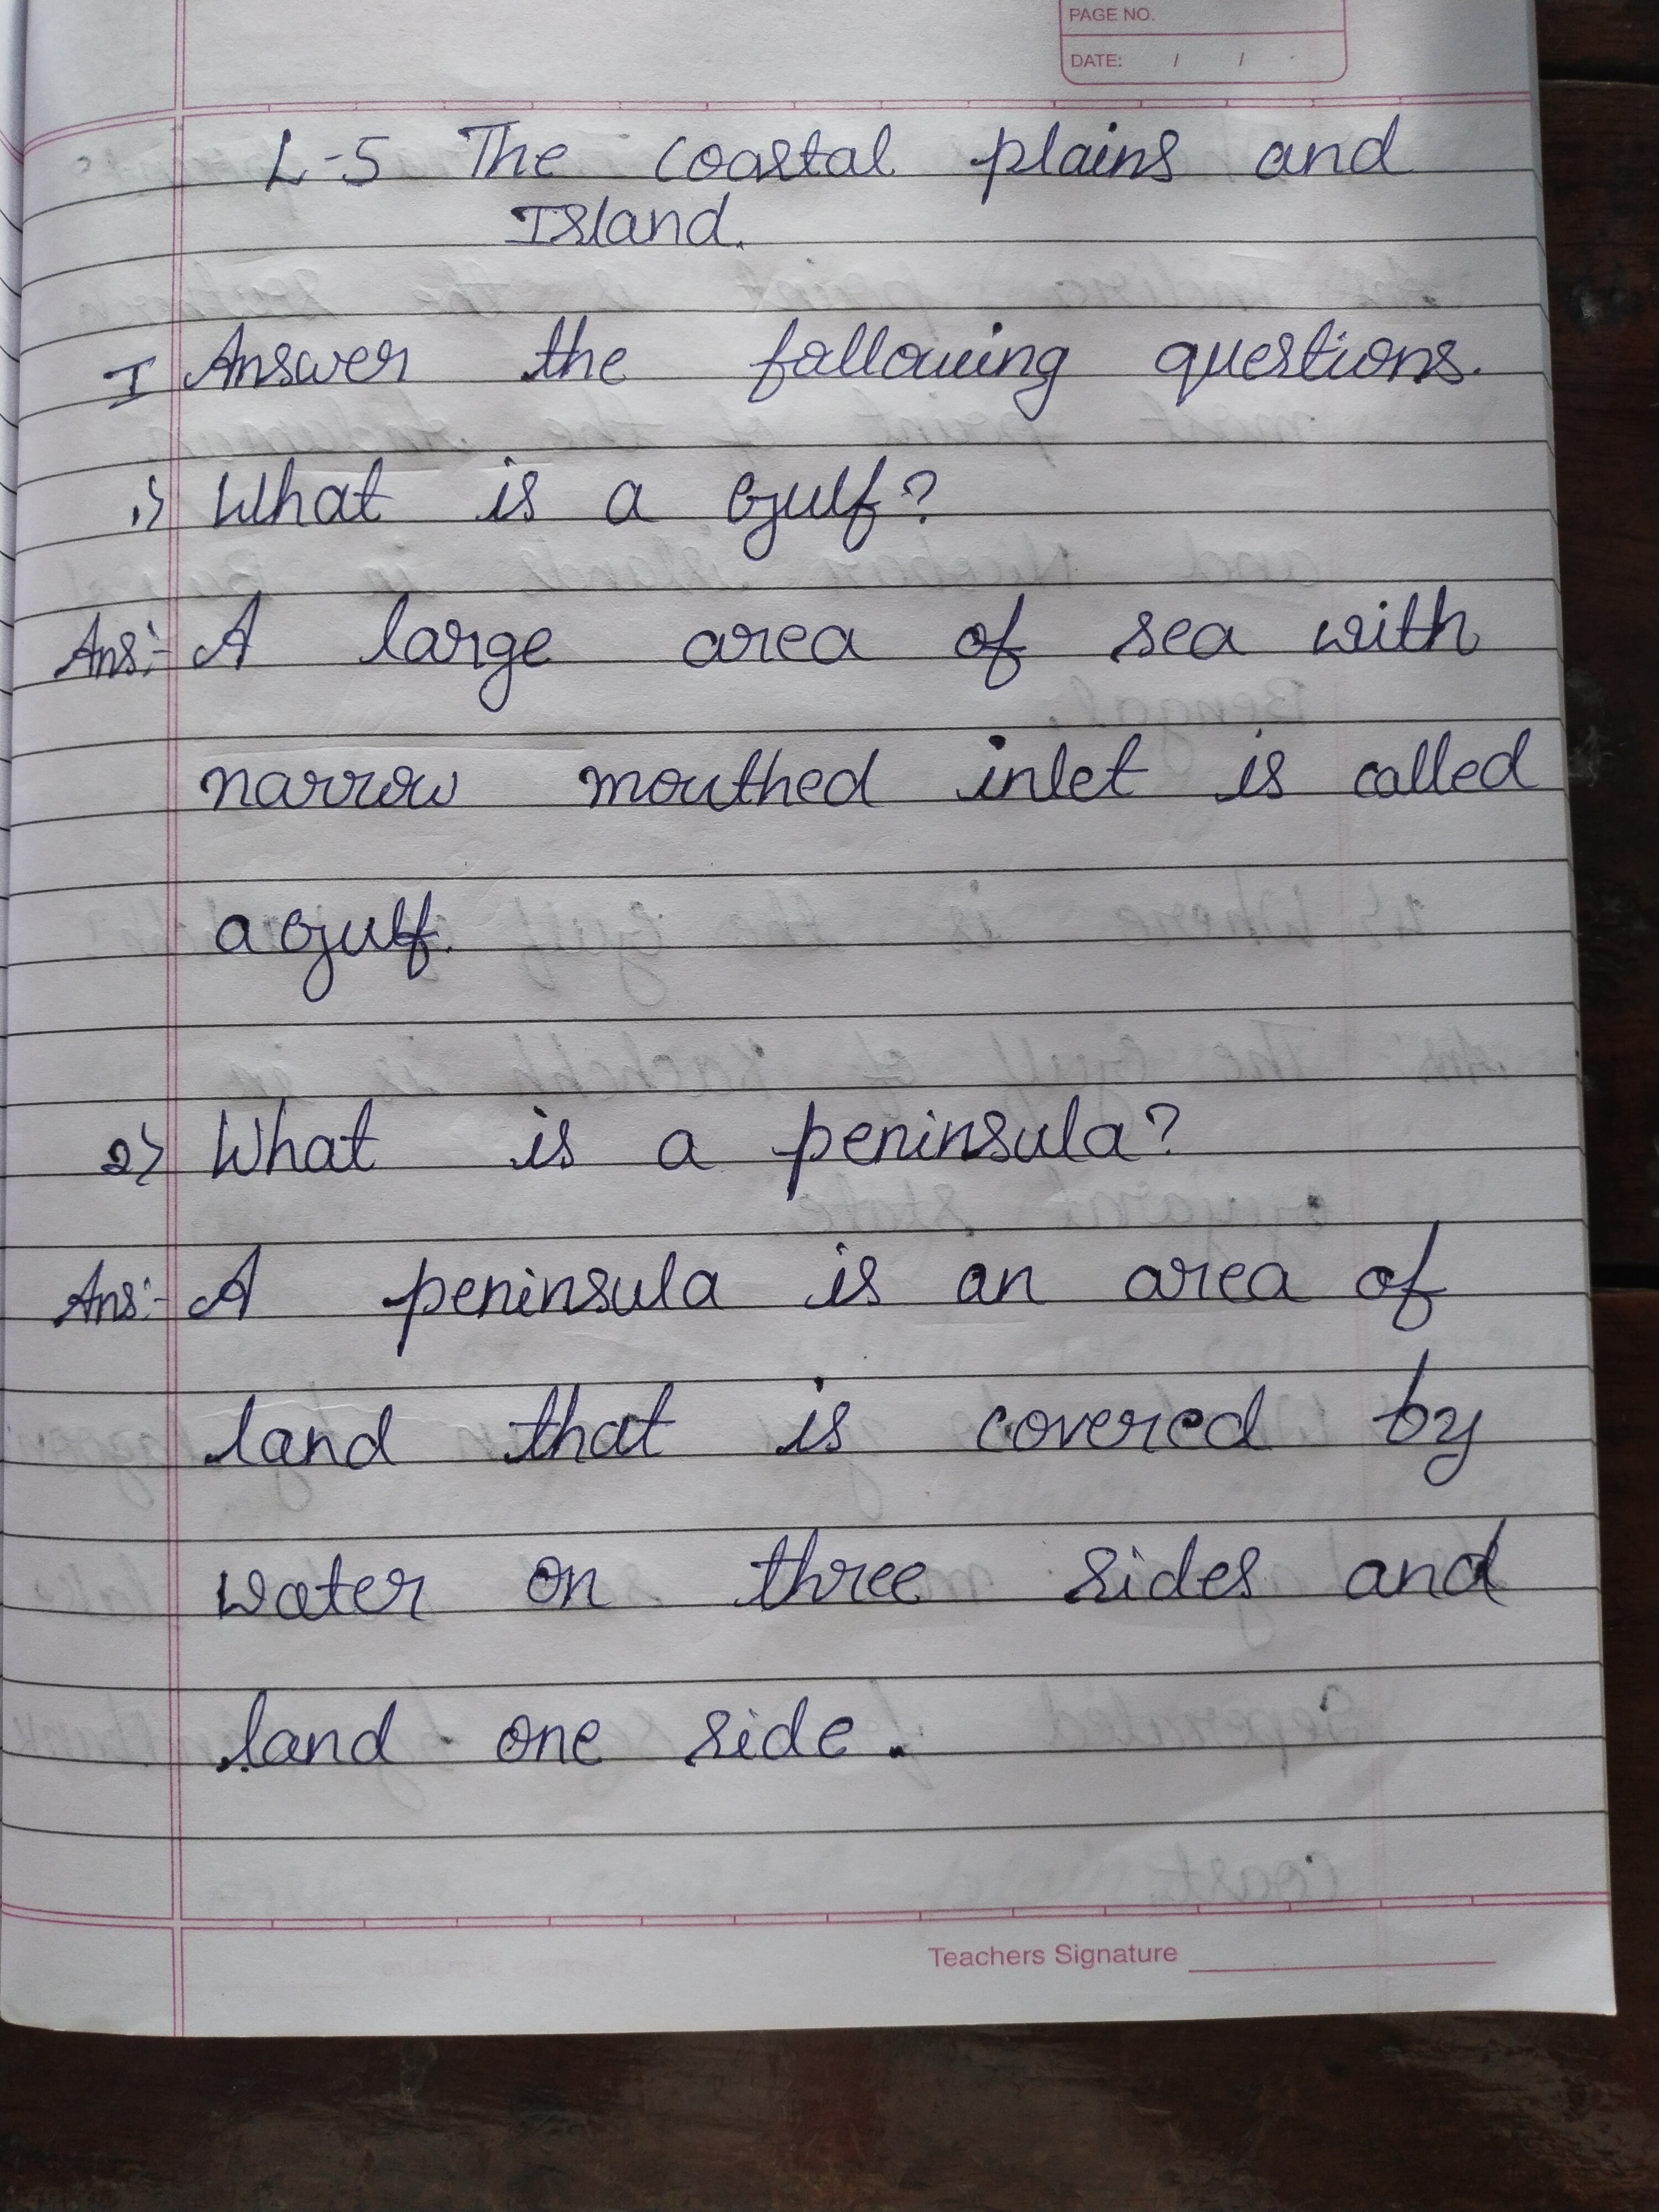 PAGE NO.
DATE: / /
L-5 The Coastal plains and
Island.
I Answer the following questions.
1) What is a Gulf?
Ans:- A large area of sea with
narrow mouthed inlet is called
a Gulf.
2) What is a peninsula?
Ans:- A peninsula is an area of
land that is covered by
water on three sides and
land one side.
Teachers Signature